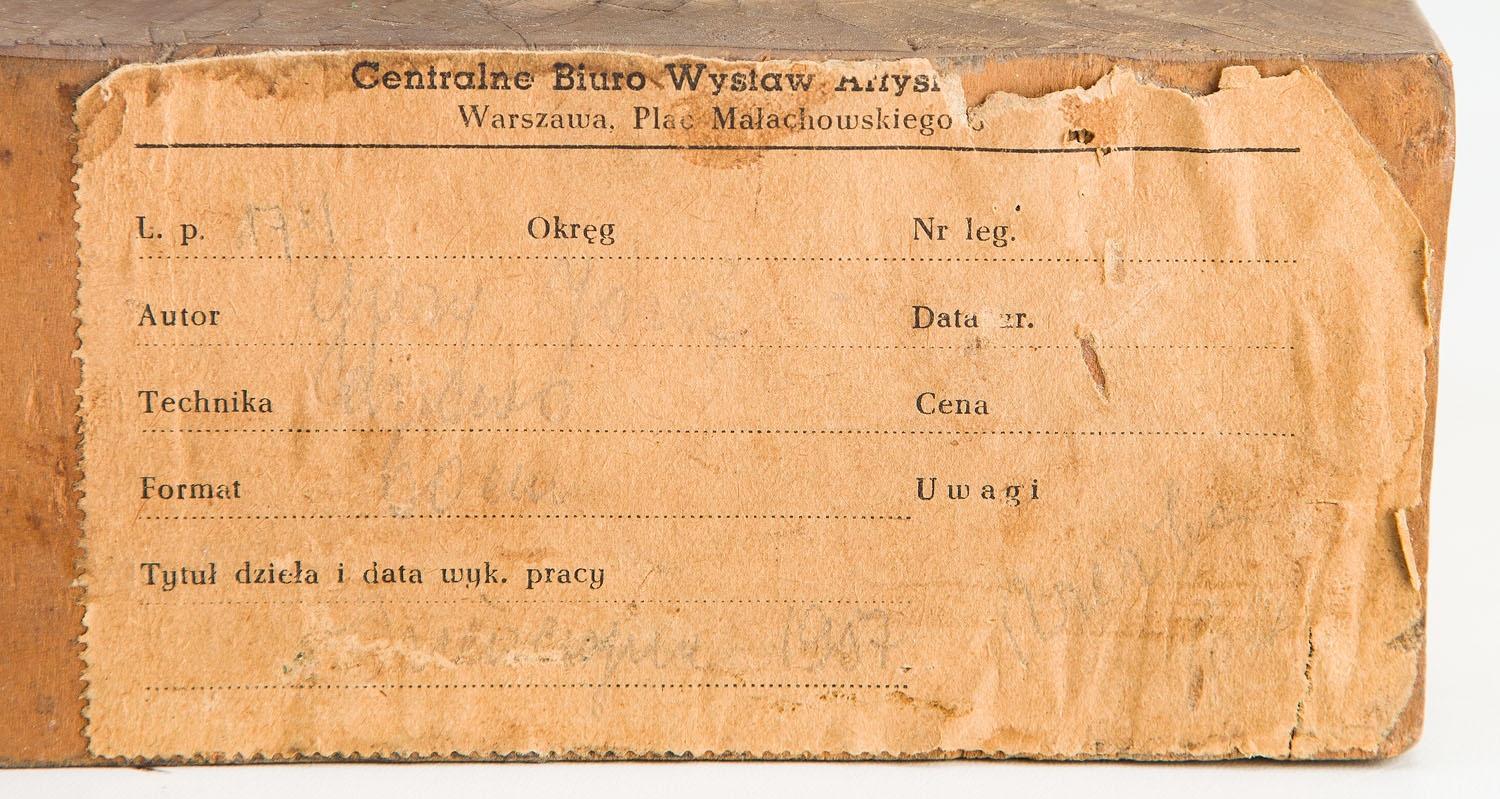 Centralne Biuro Wystaw Artys
Warszawa, Plac Małachowskiego 3
L. p. Okręg Nr leg.
Autor Data ur.
Technika Cena
Format 60 cm Uwagi
Tytuł dzieła i data wyk. pracy
1957